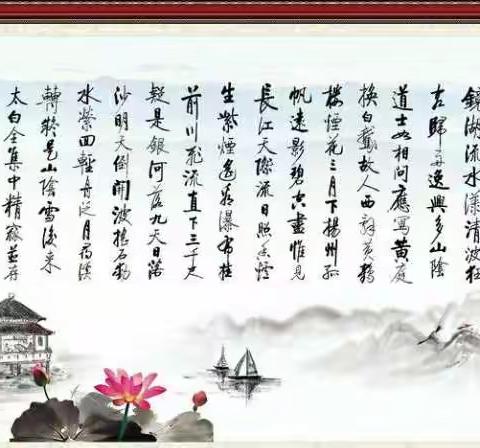 鏡湖流水漾清波狂
客歸舟逸興多山陰
道士如相問應寫黃庭
換白鵝故人西辭黃鶴
樓煙花三月下揚州孤
帆遠影碧空盡惟見
長江天際流日照香爐
生紫煙遙看瀑布挂
前川飛流直下三千尺
疑是銀河落九天日落
沙明天倒開波搖石動
水縈回輕舟泛月尋溪
轉疑是山陰雪後來
太白全集中精